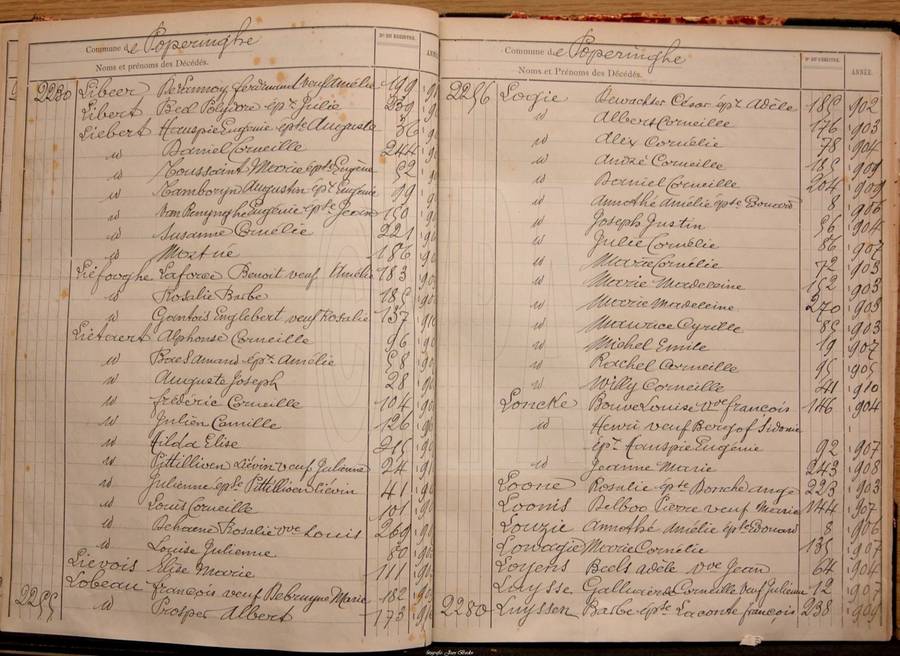 Commune de Poperinghe
Noms et prénoms des Décédés.
2230 Libeer Delannoy Ferdinand veuf Amélie 199
Libert Beel Polydore épx Julie 239
Liebert Hauspie Eugénie épte Auguste 36
id Daniel Corneille 244
id Toussaint Marie épte Eugène 52
id Tamboryn Augustin épx Eugénie 19
id Van Renynghe Eugénie épte Jean 150
id Susanne Cornélie 221
id Mort né 186
Liefooghe Laforce Benoit veuf Amélie 183
id Rosalie Barbe 185
id Gantois Englebert veuf Rosalie 137
Lietaert Alphonse Corneille 96
id Bael Amand épx Amélie 58
id Auguste Joseph 28
id Frédéric Corneille 104
id Julien Camille 126
id Hilda Elise 215
id Pittillion Liévin veuf Julienne 24
id Julienne épte Pittillion Liévin 41
id Louis Corneille 101
id Dehaene Rosalie vve Louis 269
id Louise Julienne 80
Lievois Elise Marie 111
Lobeau François veuf Debruyne Marie 182
2255 id Prosper Albert 173
Commune de Poperinghe
Noms et Prénoms des Décédés.
N° DU REGISTRE.
ANNÉE.
2256 Logie Dewachter César épx Adèle 185 902
id Albert Corneille 176 903
id Alex Cornélie 78 904
id André Corneille 185 909
id Daniel Corneille 204 909
id Annothé Amélie épte Edouard 8 906
id Joseph Justin 56 904
id Julie Cornélie 86 907
id Marie Cornélie 72 903
id Marie Madeleine 152 903
id Marie Madeleine 270 908
id Maurice Cyrille 85 903
id Michel Emile 19 907
id Rachel Corneille 95 905
id Willy Corneille 24 910
Loncke Bouve Louise vve François 146 904
id Henri veuf Berghof Sidonie
épx Hauspie Eugénie 92 907
id Jeanne Marie 243 908
Loone Rosalie épte Bonche Ange 223 903
Loonis Belboo Pierre veuf Marie 144 907
Louzie Annothé Amélie épte Edouard 8 906
Lowagie Marie Cornélie 135 907
Loyens Baels Adèle vve Jean 64 904
Luysse Corneille veuf Julienne 12 907
2280 Luyssen Barbe épte Laconte François 238 909